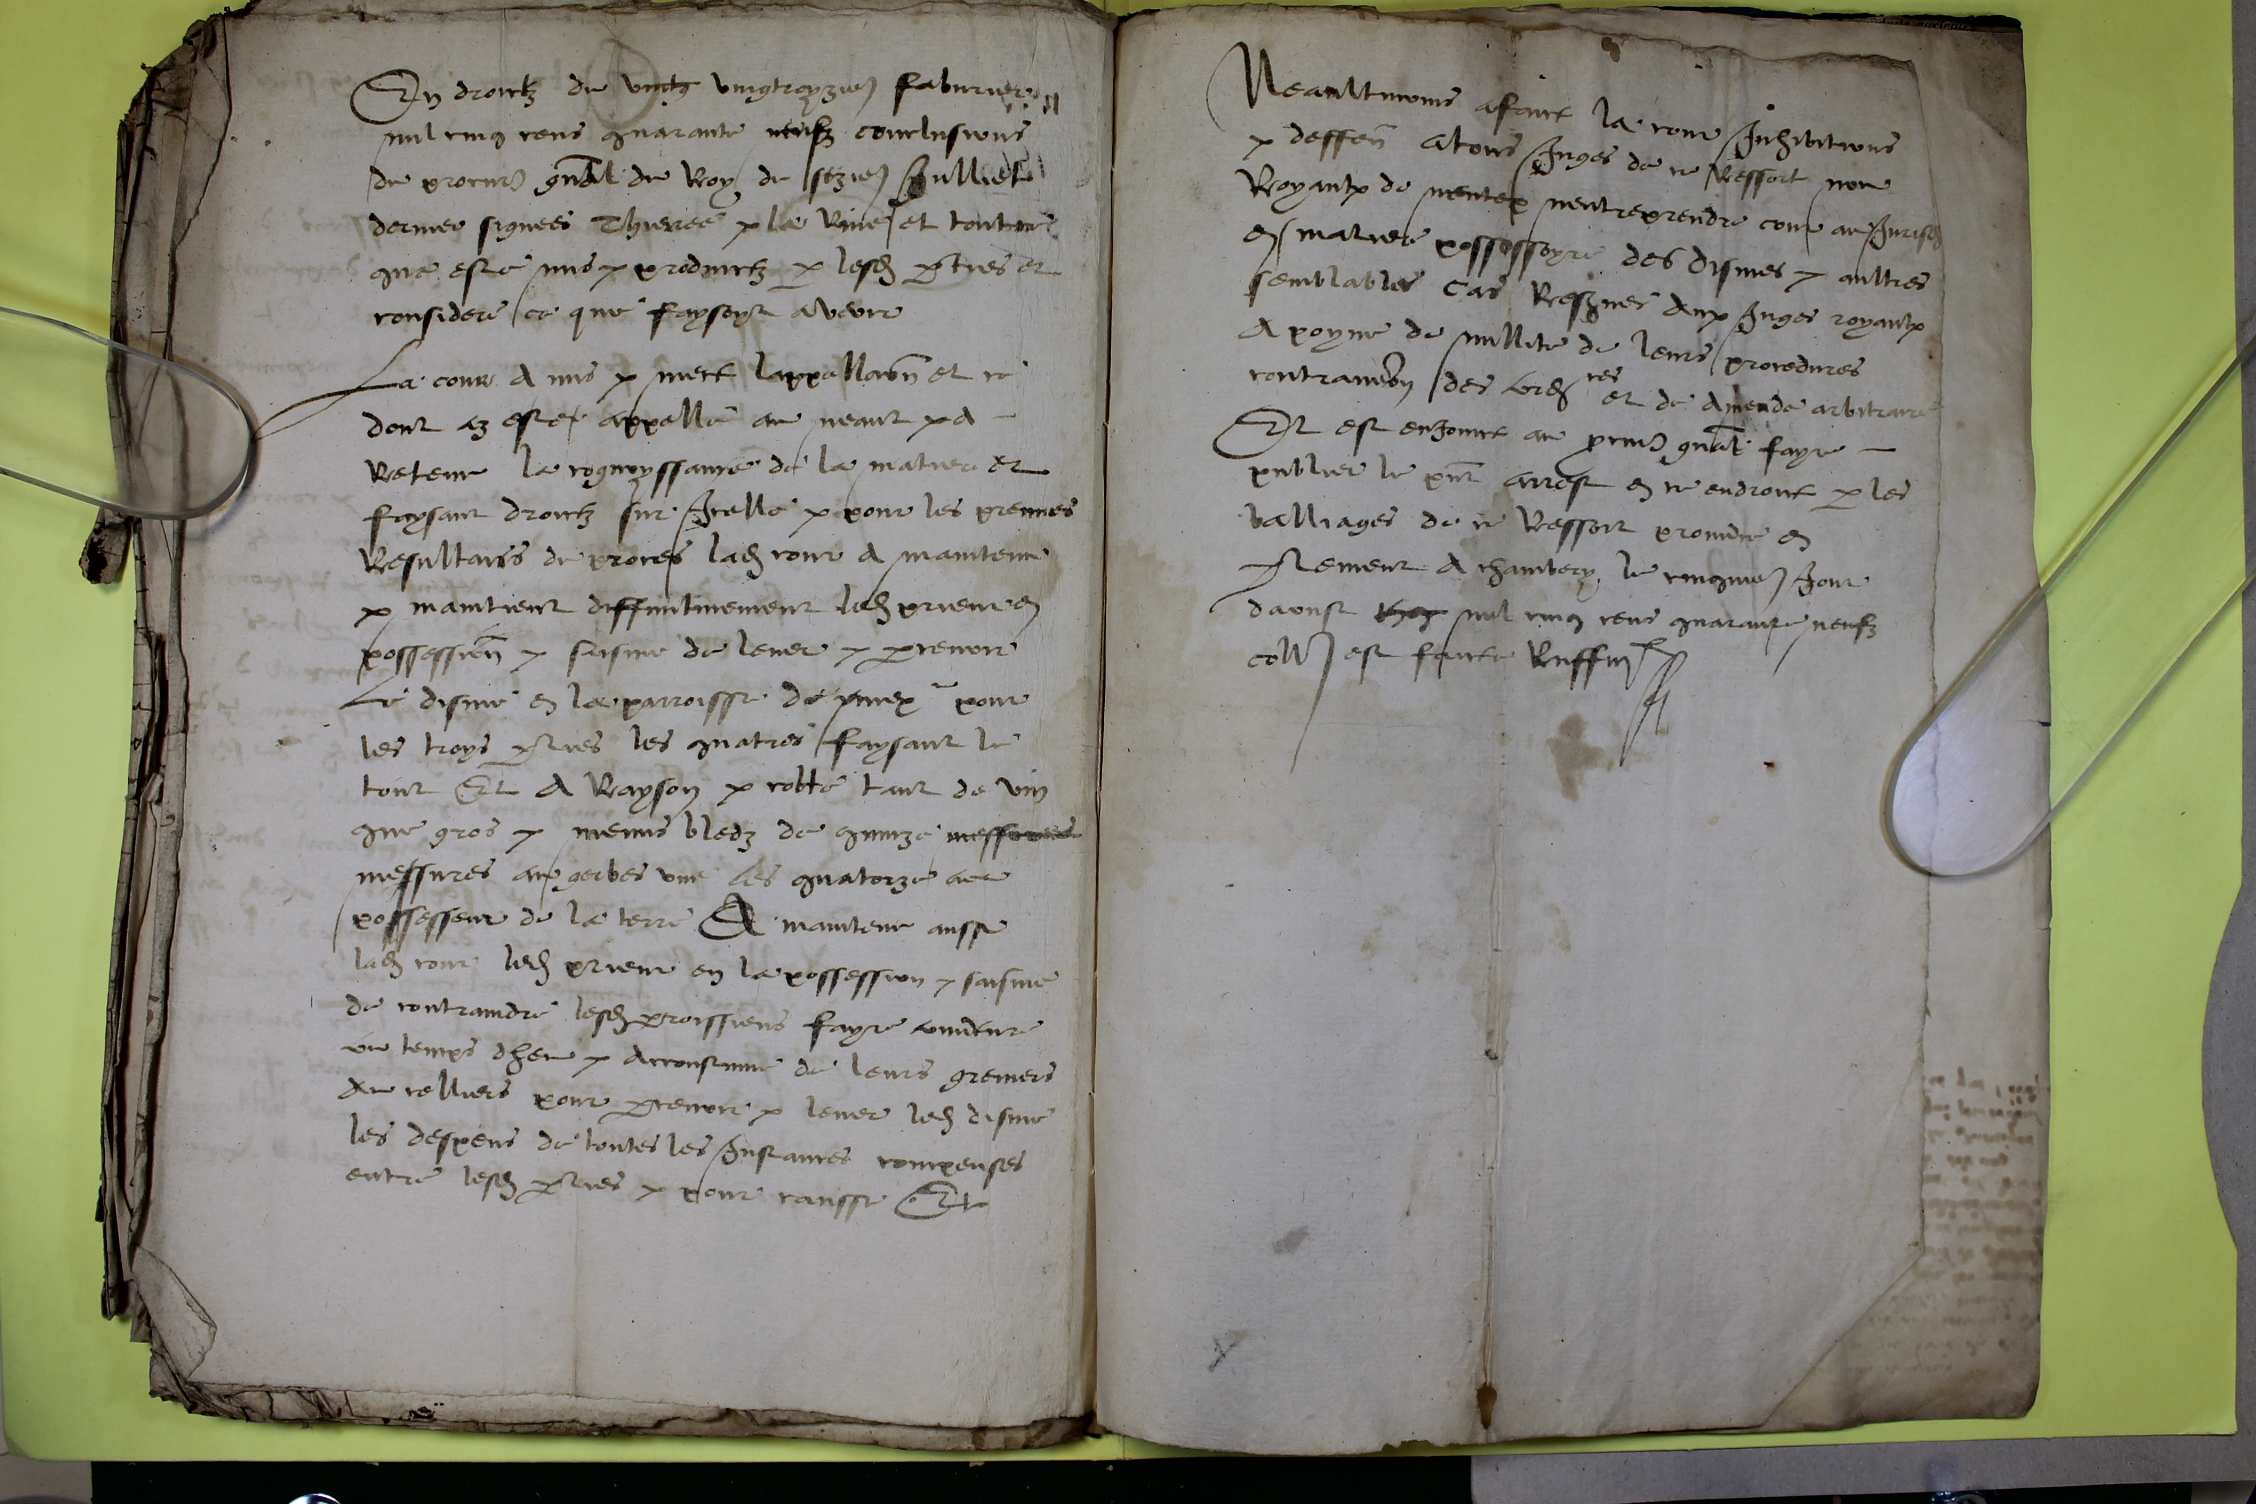 En droictz du vingtroyzie febvrier
mil cinq cens quarante neufz conclusions
du procur gnal du Roy du sezie Juilliet
dernier signees Thieree & la Rive et tout ce
que este mis & produictz p lesd pties et
considere ce que faysoyt a veoir
La cour a mis & mect lappellaon et ce
dont az este appelle au neant & a
Retenu la cognoyssance de la matiere et
faysant droictz sur Icelle & pour les preuves
Resultans du proces lad cour a maintenu
& maintient diffinitivement led prieur en
possession & saisine de lever & pcevoir
Le disme en la parroisse de pour
les troys pties les quatres faysant le
tout Et a Rayson & cotte tant de vin
que gros & menus bledz de quinze
messures ou gerbes une les quatorze au
possesseur de la terre A maintenu aussi
lad cour led prieur en la possession & saisine
de contraindre lesd proissiens fayre
du temps dheu & accoustume de leurs greniers
au celliers pour pcevoir & lever led disme
les despens de toutes les Instances compenses
entre lesd pties & pour causse Et
Neaultmoins a faict la cour Inhibitions
& deffen a tous Juges de ce Ressort non
Royaulx de nentreprendre cour au Jurisd
en matiere possessoyre des dismes & aultres
semblables Cas Reserves aux Juges royaulx
a poyne de nullite de leurs procedures
contravention des ord ces et de amende arbitraire
Et est enJoinct au procur gnal fayre
publier le pnt arrest en ce endroict p les
balliages de ce Ressort prononce en
plement a chambery le cinquie Jour
daoust mil cinq cens quarante neufz
coll est faicte Ruffin